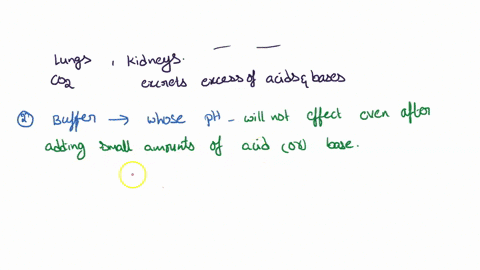 Lungs , Kidneys.
CO2 excrets excess of acids & bases
② Buffer → whose pH - will not effect even after
adding small amounts of acid (or) base.